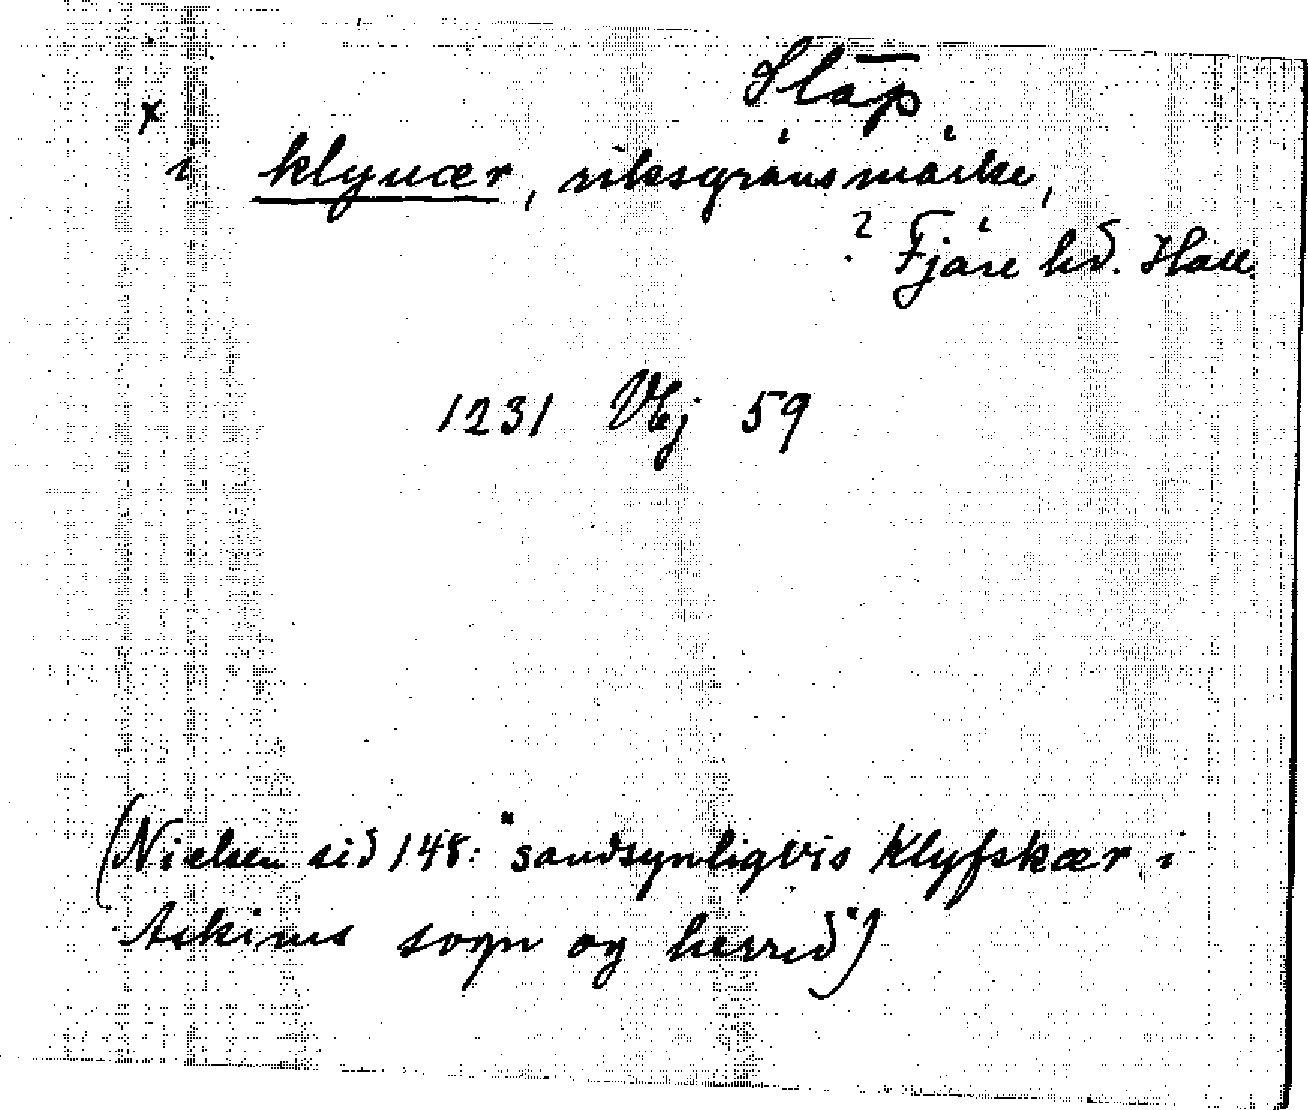 Släp
x
i klyuær, riksgränsmärke,
? Fjäre hd. Hall.
1231 VEj 59
(Nielsen sid 148: "sandsynligvis Klyfskær i
Askims sogn og herred")